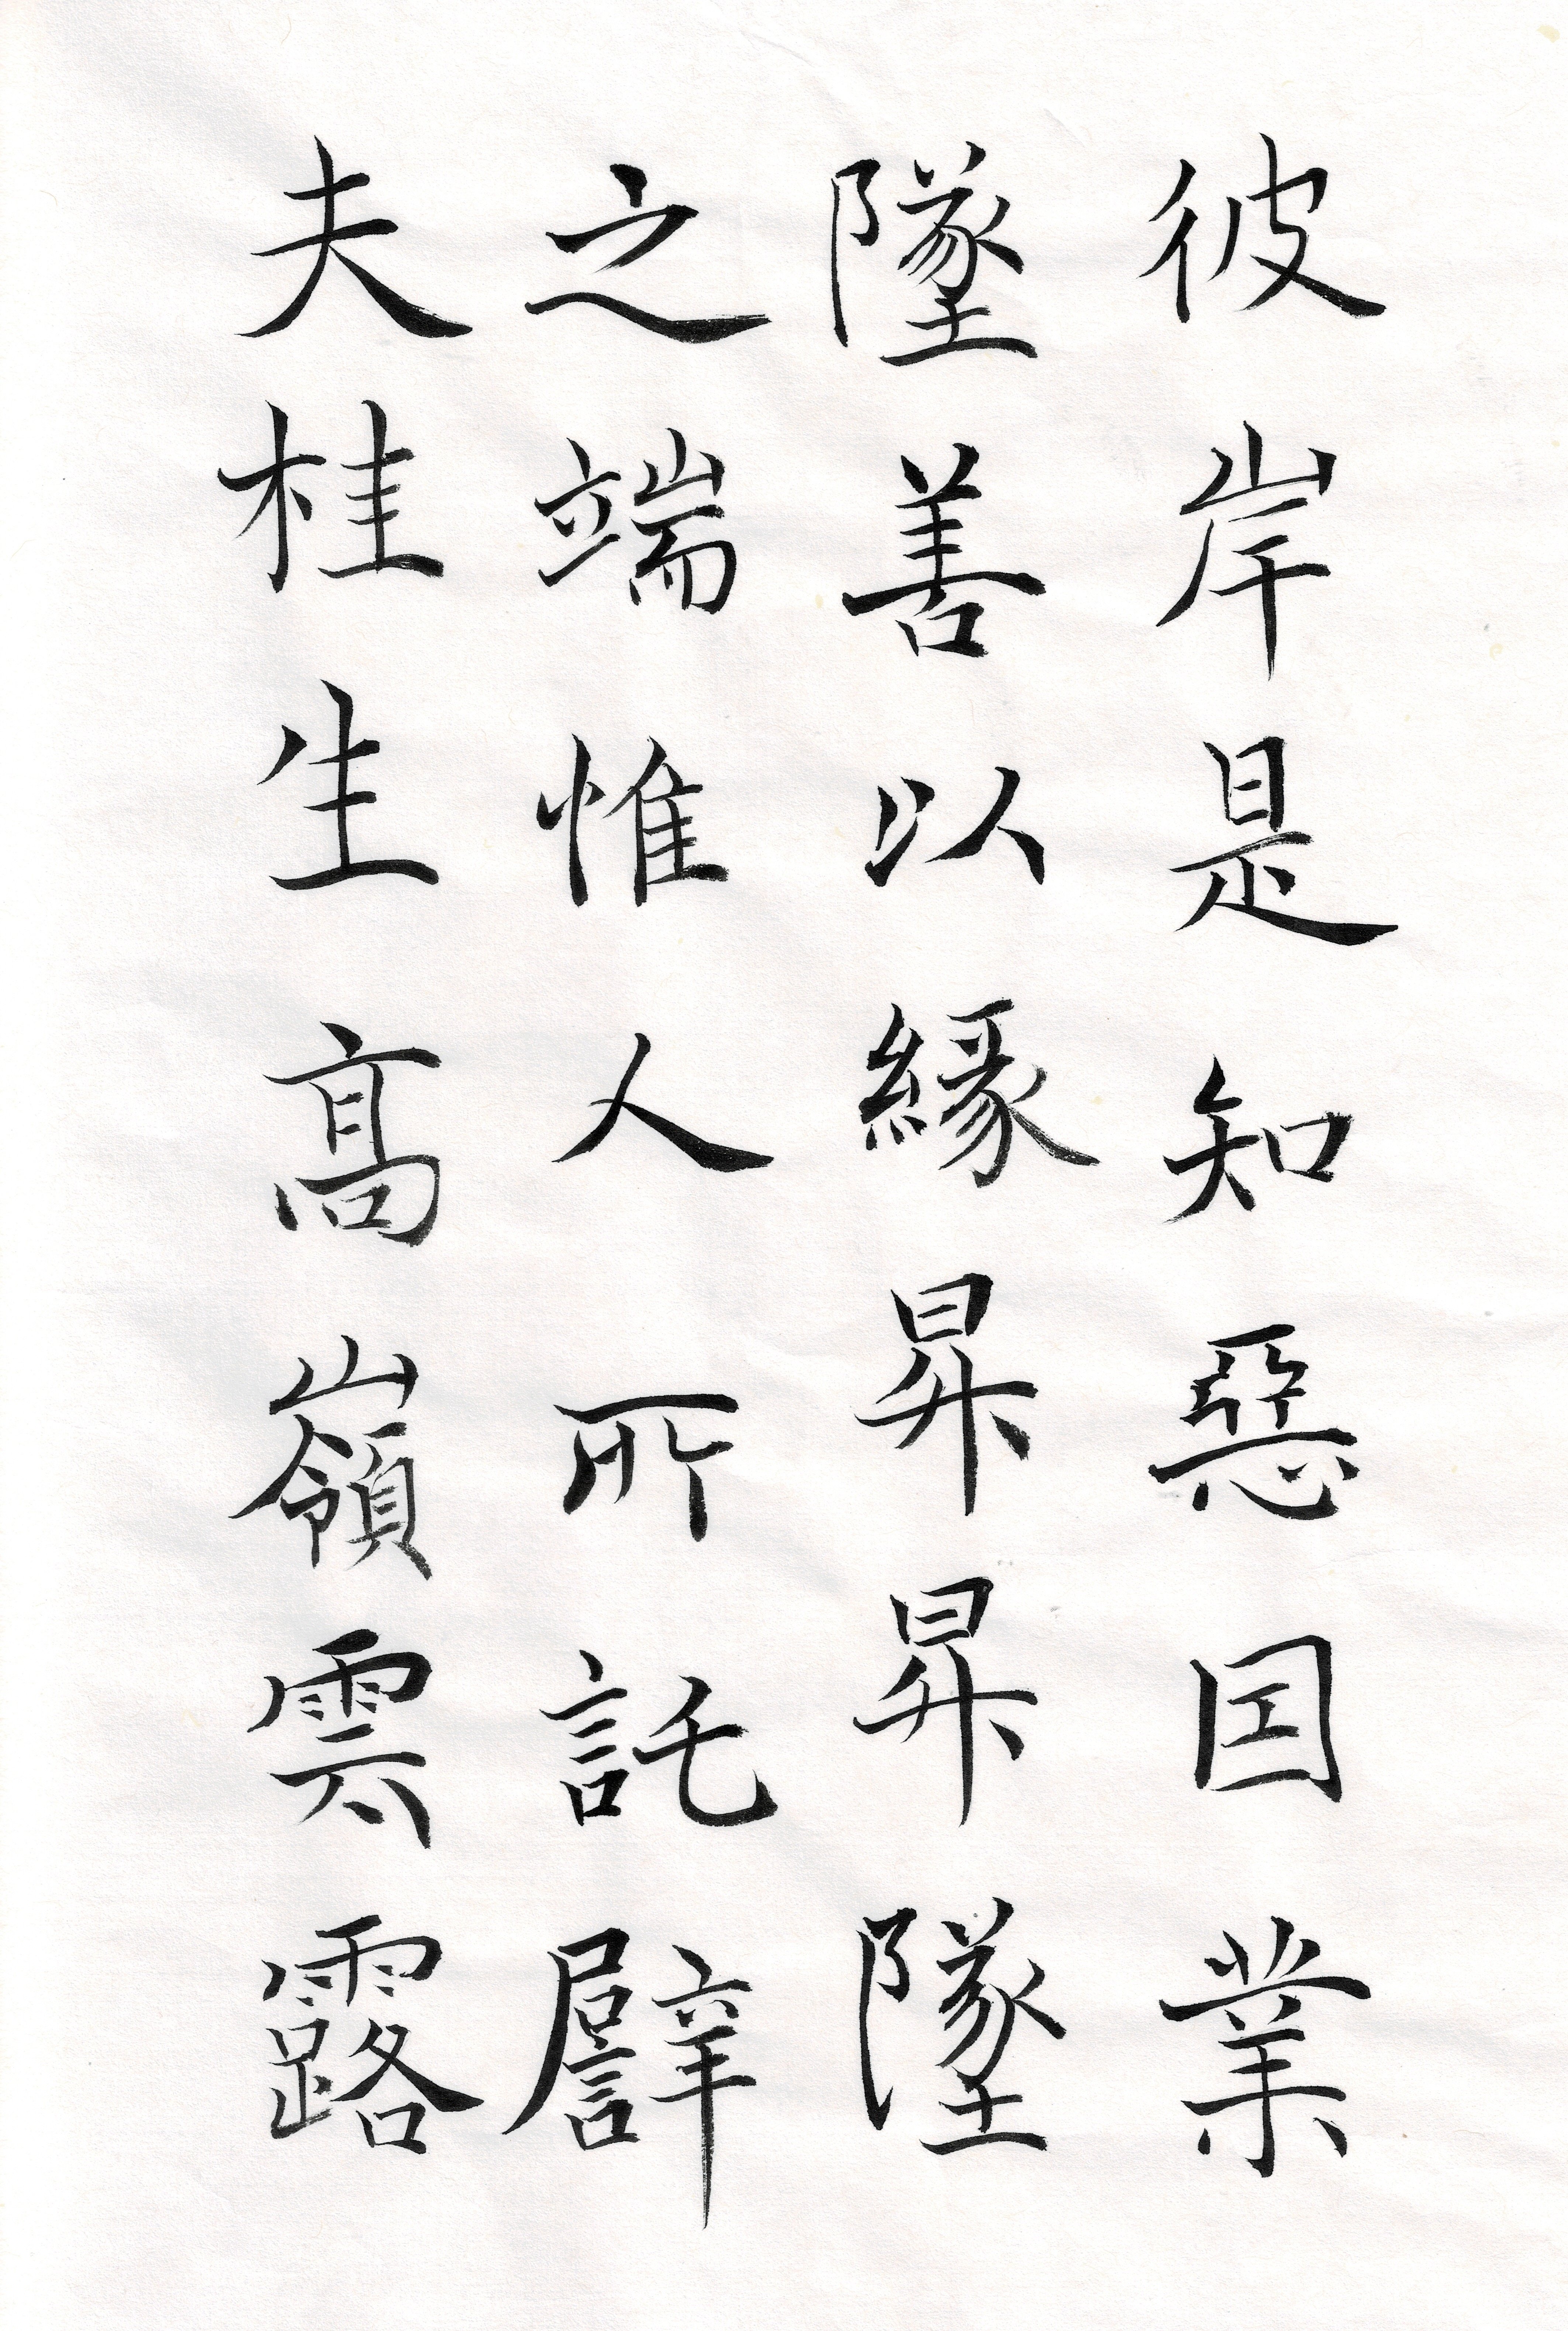 彼岸是知惡因業
墜善以緣昇昇墜
之端惟人所託譬
夫桂生高嶺雲露